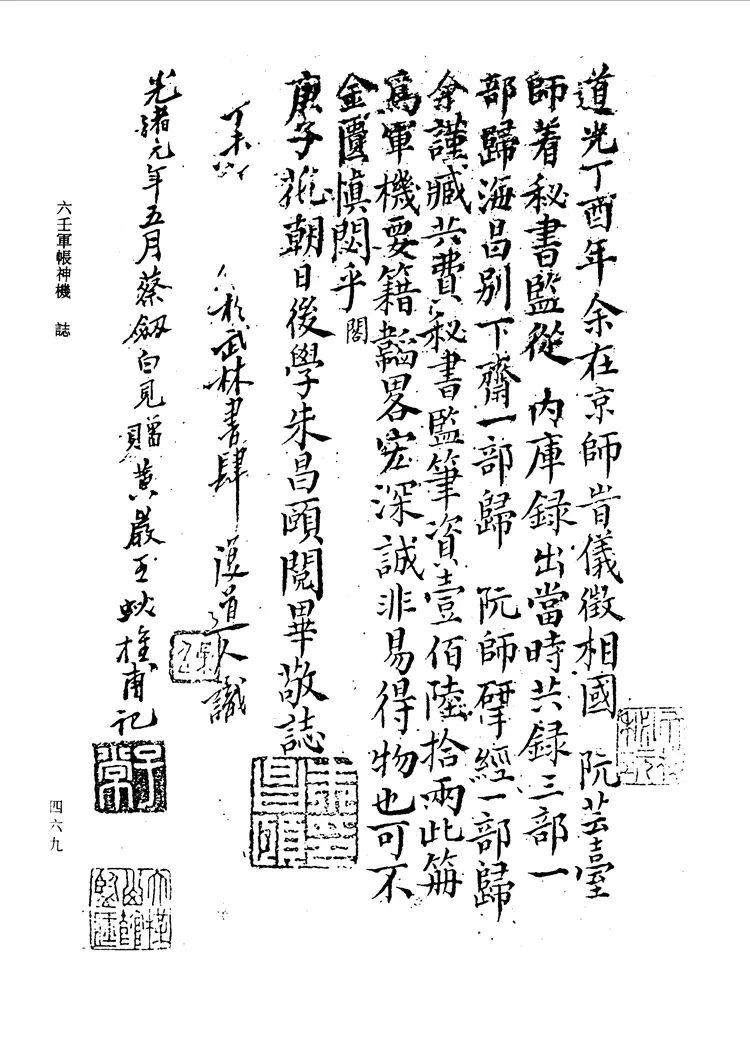 道光丁酉年余在京師昔儀徵相國 阮芸臺
師着秘書監從 內庫録出當時共録三部一
部歸海昌別下齋一部歸 阮師揅經一部歸
余謹臧共費秘書監筆資壹佰陸拾兩此冊
爲軍機要籍韜畧宏深誠非易得物也可不
金匱慎閟乎 閣
庚子花朝日後學朱昌頤閱畢敬誌
丁未 於武林書肆 道人識
光緒元年五月蔡劔白見贈黃巖王 甫記
六壬軍帳神機 誌
四六九